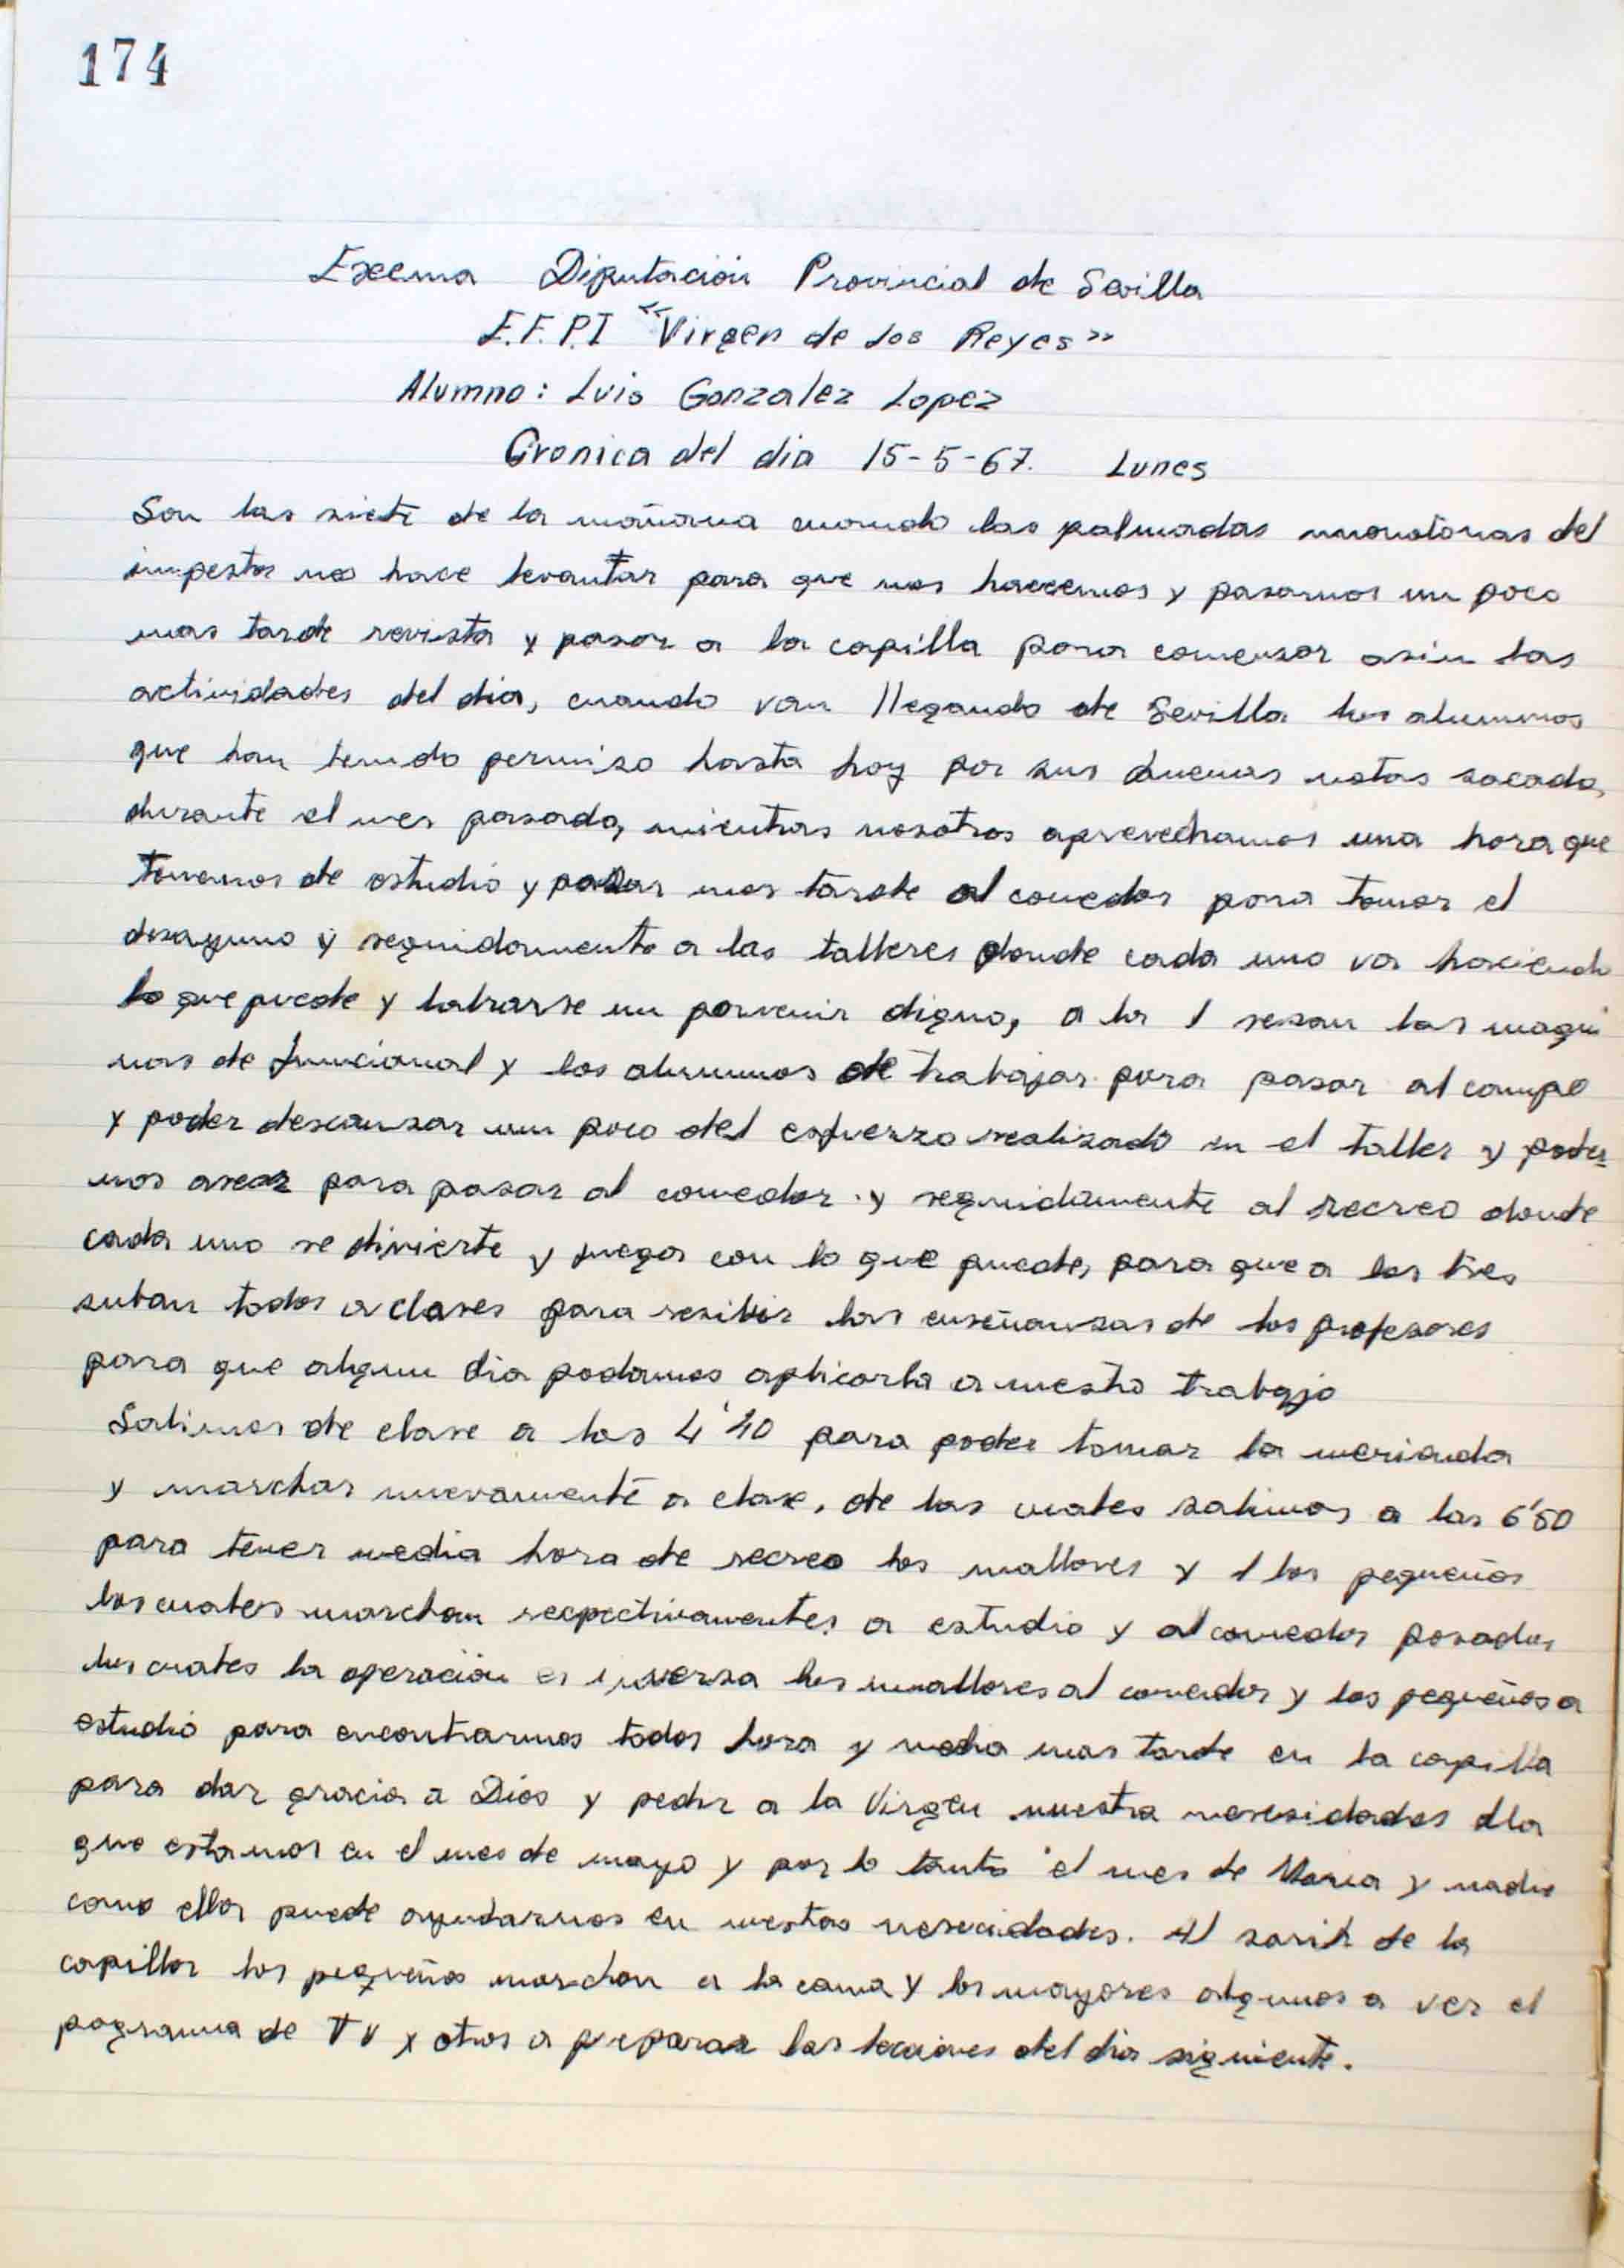 174
Excma Diputación Provincial de Sevilla
E.F.P.I "Virgen de los Reyes"
Alumno: Luis Gonzalez Lopez
Cronica del dia 15-5-67. Lunes
Son las siete de la mañana cuando las palmadas monotonas del
impestor nos hace levantar para que nos haceemos y pasarnos un poco
mas tarde revista y pasar a la capilla para comensar asin las
actividades del dia, cuando van llegando de Sevilla los alumnos
que han tenido permiso hasta hoy por sus buenas notas sacada,
durante el mes pasado, mientras nosotros aprevechamos una hora que
tenemos de estudio y pasar mas tarde al comedor para tomar el
desayuno y seguidamente a las talleres donde cada uno va haciendo
lo que puede y labrarse un porvenir digno, a la 1 sesan las maqui
nas de funcional y los alumnos de trabajar para pasar al campo
y poder descansar un poco del esfuerzo realizado en el taller y poder
nos asear para pasar al comedor y seguidamente al recreo donde
cada uno se divierte y juega con lo que puede, para que a las tres
suban todos a clases para resibir las enseñansas de los profesores
para que algun dia podamos aplicarla a nuestro trabajo
Salimos de clase a las 4'40 para poder tomar la merienda
y marchar nuevamente a clase, de las cuales salimos a las 6'50
para tener media hora de recreo los mallores y 1 los pequeños
los cuales marchan respectivamentes a estudio y al comedor pasados
los cuales la operación es inversa los mallores al comedor y los pequeños a
estudio para encontrarnos todos hora y media mas tarde en la capilla
para dar gracia a Dios y pedir a la Virgen nuestra nesesidades lla
que estamos en el mes de mayo y por lo tanto el mes de Maria y nadie
como ella puede ayudarnos en nuestas nesecidades. Al sarir de la
capilla los pequeños marchan a la cama y los mayores algunos a ver el
pograma de TV y otros a preparar las lecciones del dia siguiente.